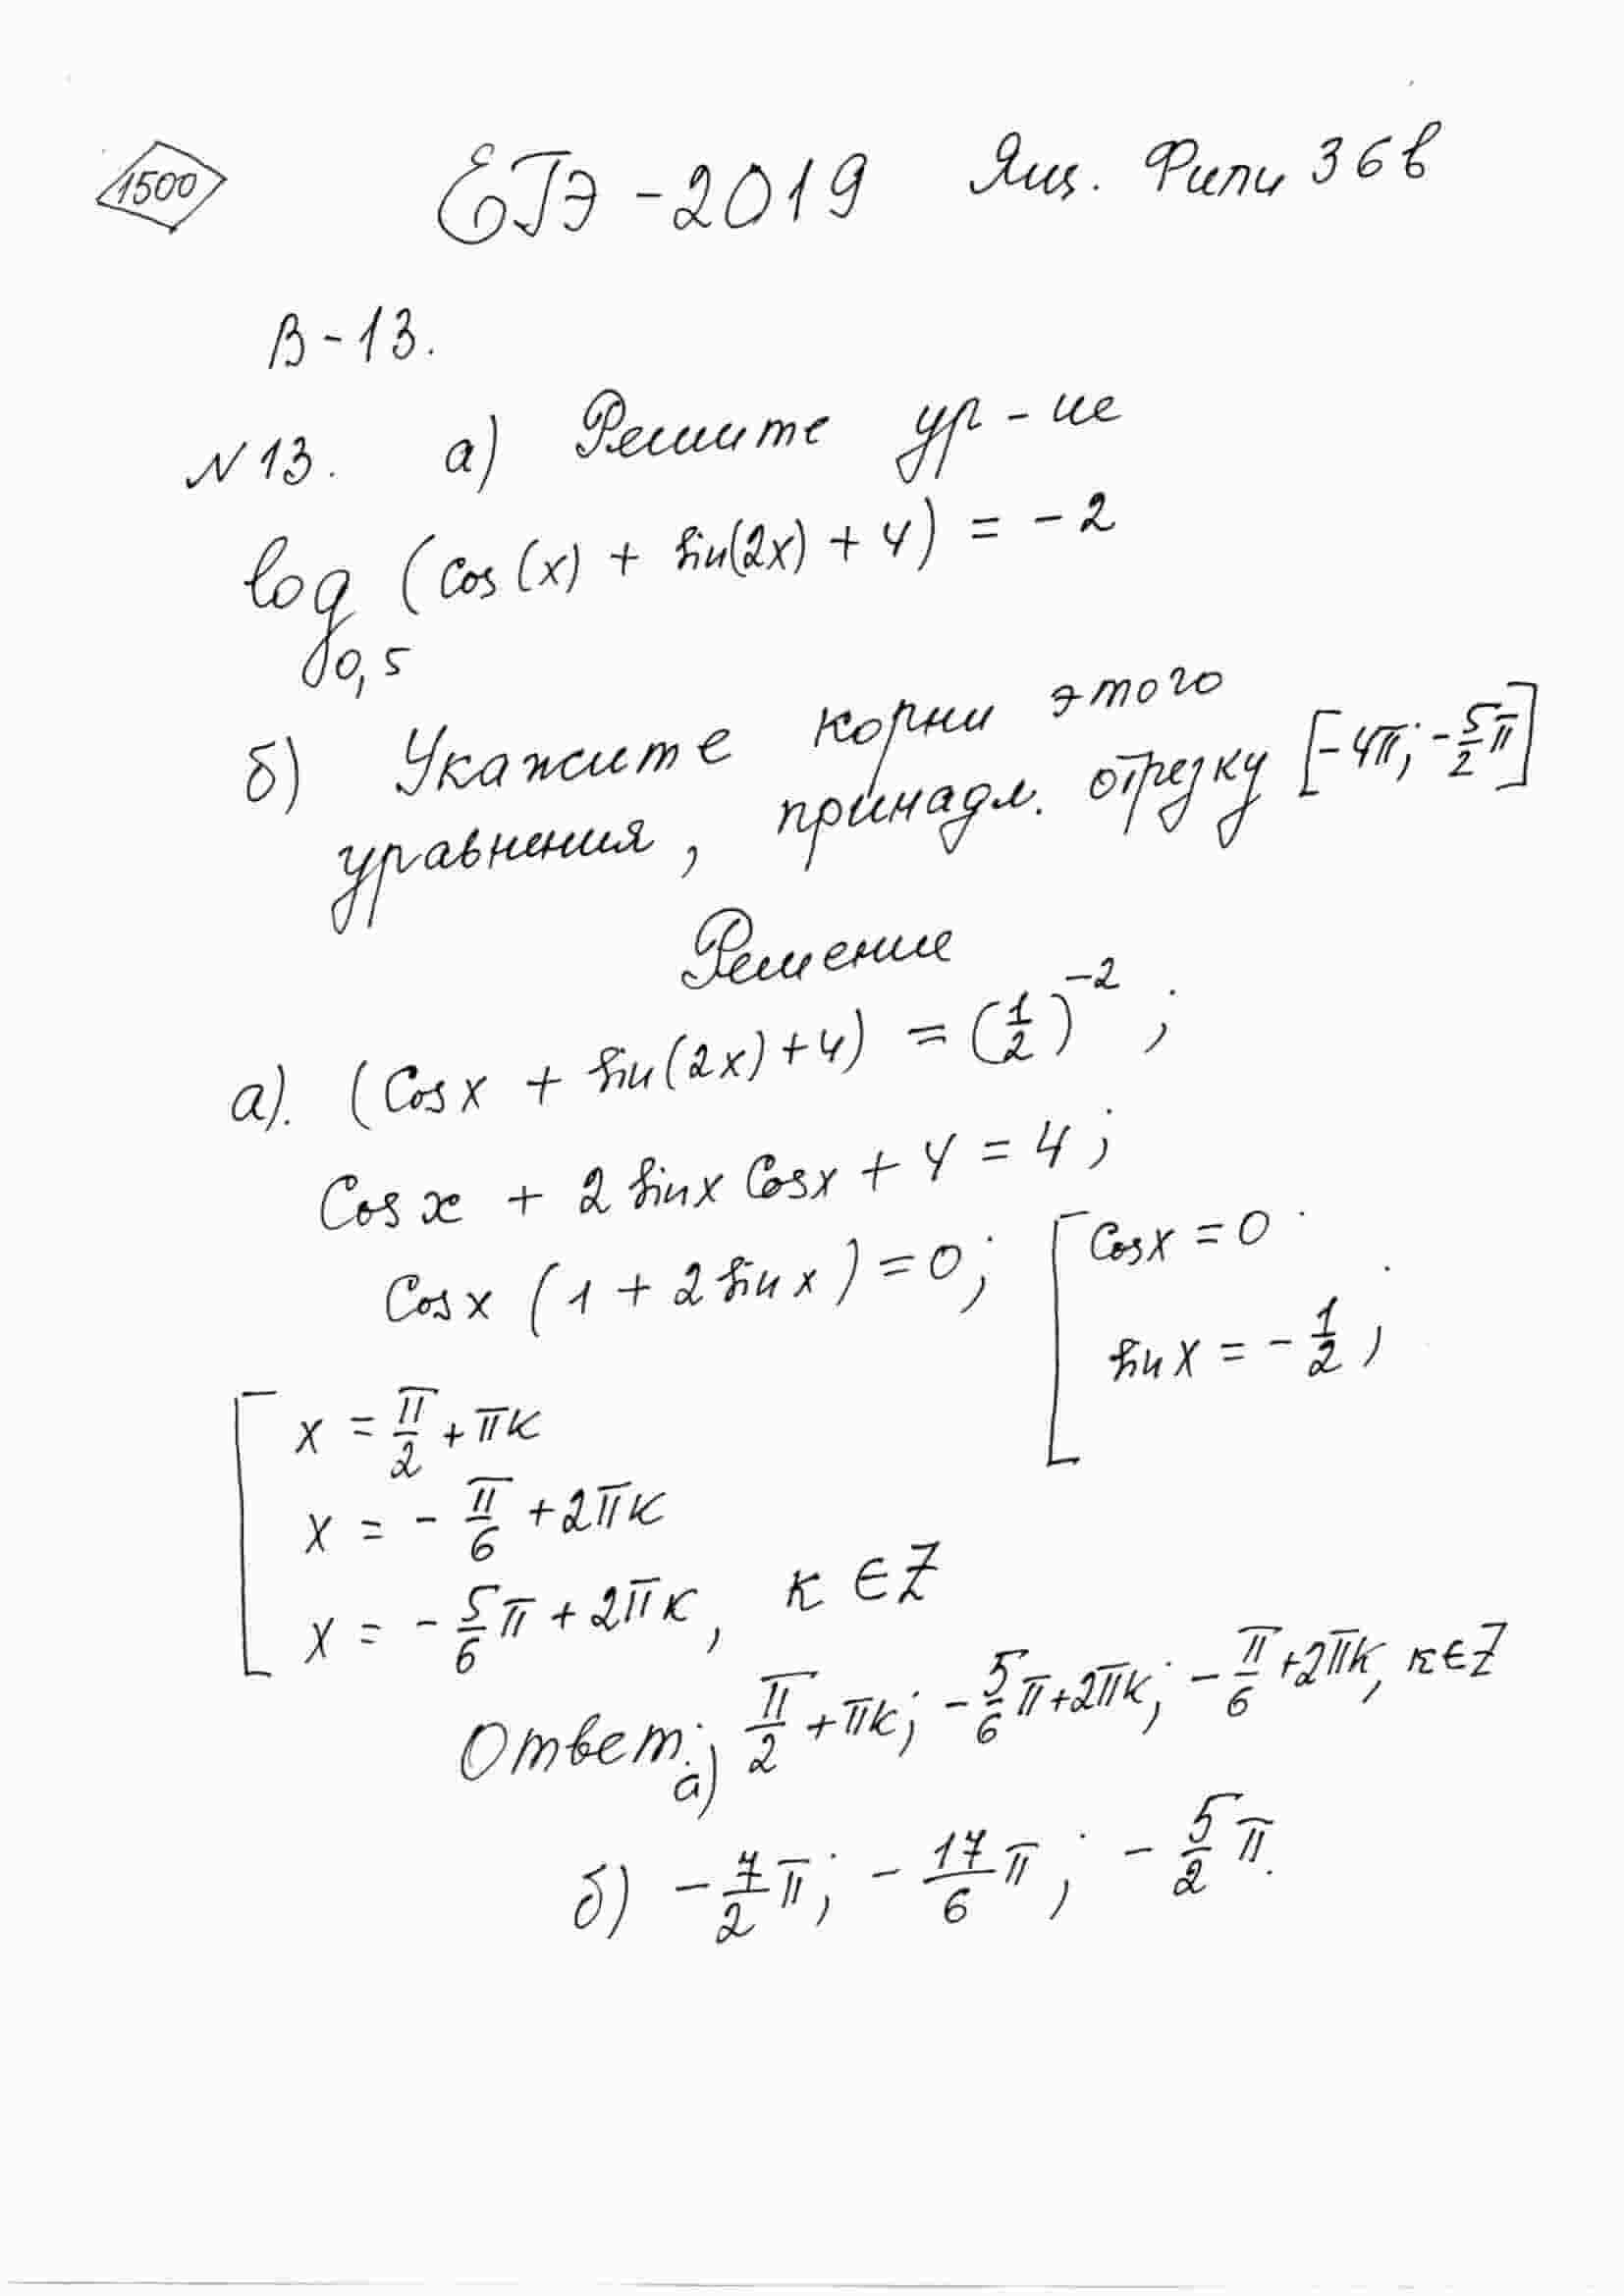 1500
ЕГЭ - 2019 Ящ. Фипи 36 в
В - 13.
N 13. а) Решите ур - ие
log₀,₅ (cos(x) + sin(2x) + 4) = - 2
б) Укажите корни этого
уравнения, принадл. отрезку [-4π; -5/2 π]
Решение
а). (Cos x + sin(2x) + 4) = (1/2)⁻² ;
Cos x + 2 sin x Cos x + 4 = 4 ;
Cos x (1 + 2 sin x) = 0 ; [ Cos x = 0
sin x = - 1/2 ;
[ x = π/2 + πк
x = - π/6 + 2πк
x = - 5/6 π + 2πк, к ∈ Z
Ответ: а) π/2 + πк; - 5/6 π + 2πк; - π/6 + 2πк, к ∈ Z
б) - 7/2 π; - 17/6 π ; - 5/2 π.